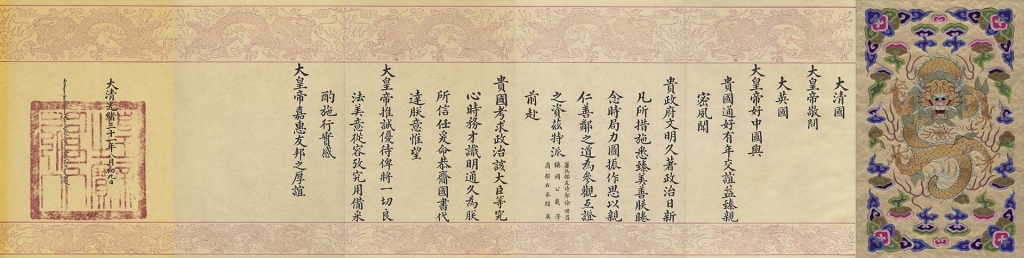 大清國
大皇帝敬問
大英國
大皇帝好中國與
貴國通好有年交誼益臻親
密夙聞
貴政府文明久著政治日新
凡所措施悉臻美善朕睠
念時局力圖振作思以親
仁善鄰之道為參觀互證
之資茲特派
鎮國公載澤
前赴
貴國考求政治該大臣等究
心時務才識明通久為朕
所信任爰命恭齎國書代
達朕意惟望
大皇帝推誠優待俾將一切良
法美意從容攷究用備采
酌施行實感
大皇帝嘉惠友邦之厚誼
大清光緒三十一年八月初九日